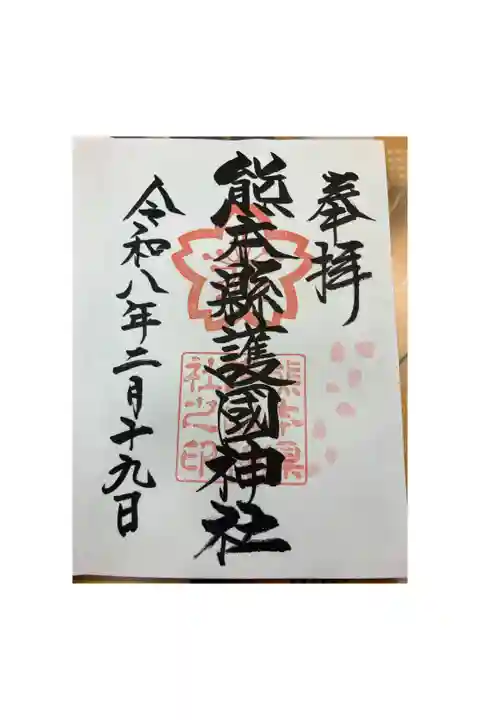 奉拝
熊本縣護國神社
熊本県
社之印
令和八年二月十九日